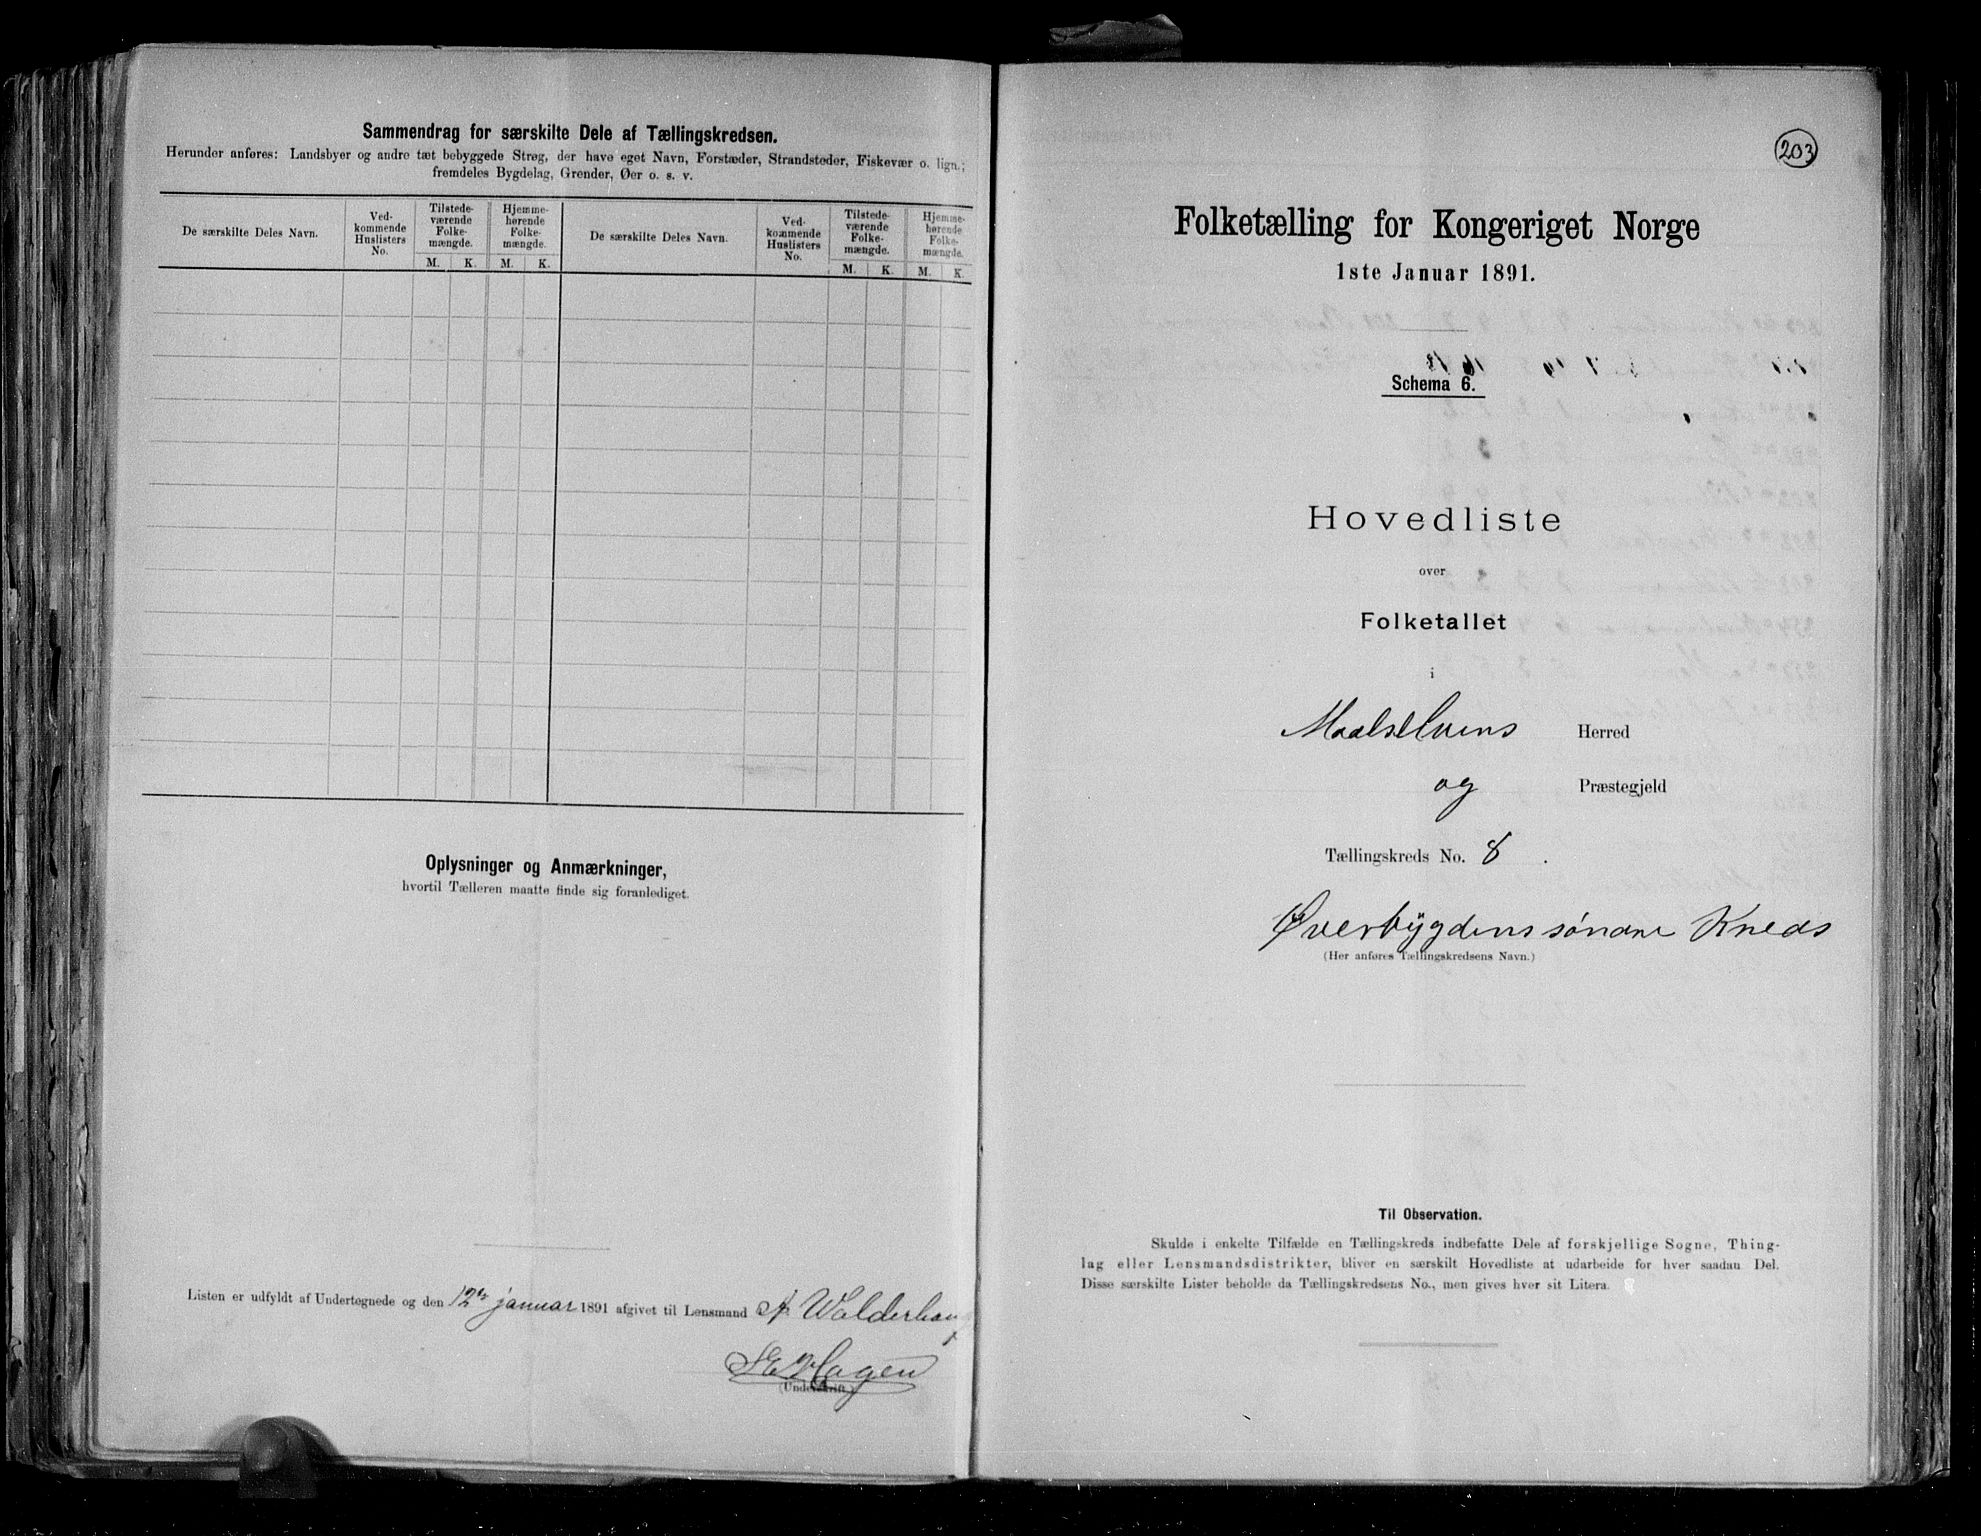 Sammendrag for særskilte Dele af Tællingskredsen.
Herunder anføres: Landsbyer og andre tæt bebyggede Strøg, der have eget Navn, Forstæder, Strandsteder, Fiskevær o. lign.;
fremdeles Bygdelag, Grender, Øer o. s. v.
De særskilte Deles Navn.
Ved-
kommende
Huslisters
No.
Tilstede-
værende
Folke-
mængde.
Hjemme-
hørende
Folke-
mængde.
M. K. M. K.
De særskilte Deles Navn.
Ved-
kommende
Huslisters
No.
Tilstede-
værende
Folke-
mængde.
Hjemme-
hørende
Folke-
mængde.
M. K. M. K.
Oplysninger og Anmærkninger,
hvortil Tælleren maatte finde sig foranlediget.
Listen er udfyldt af Undertegnede og den 12te januar 1891 afgivet til Lensmand A. Walderhaug
Hagen
(Underskrift.)
203
Folketælling for Kongeriget Norge
1ste Januar 1891.
Schema 6.
Hovedliste
over
Folketallet
i
Maalselvens Herred
og Præstegjeld
Tællingskreds No. 8.
Øverbygdens søndre Kreds
(Her anføres Tællingskredsens Navn.)
Til Observation.
Skulde i enkelte Tilfælde en Tællingskreds indbefatte Dele af forskjellige Sogne, Thing-
lag eller Lensmandsdistrikter, bliver en særskilt Hovedliste at udarbeide for hver saadan Del.
Disse særskilte Lister beholde da Tællingskredsens No., men gives hver sit Litera.